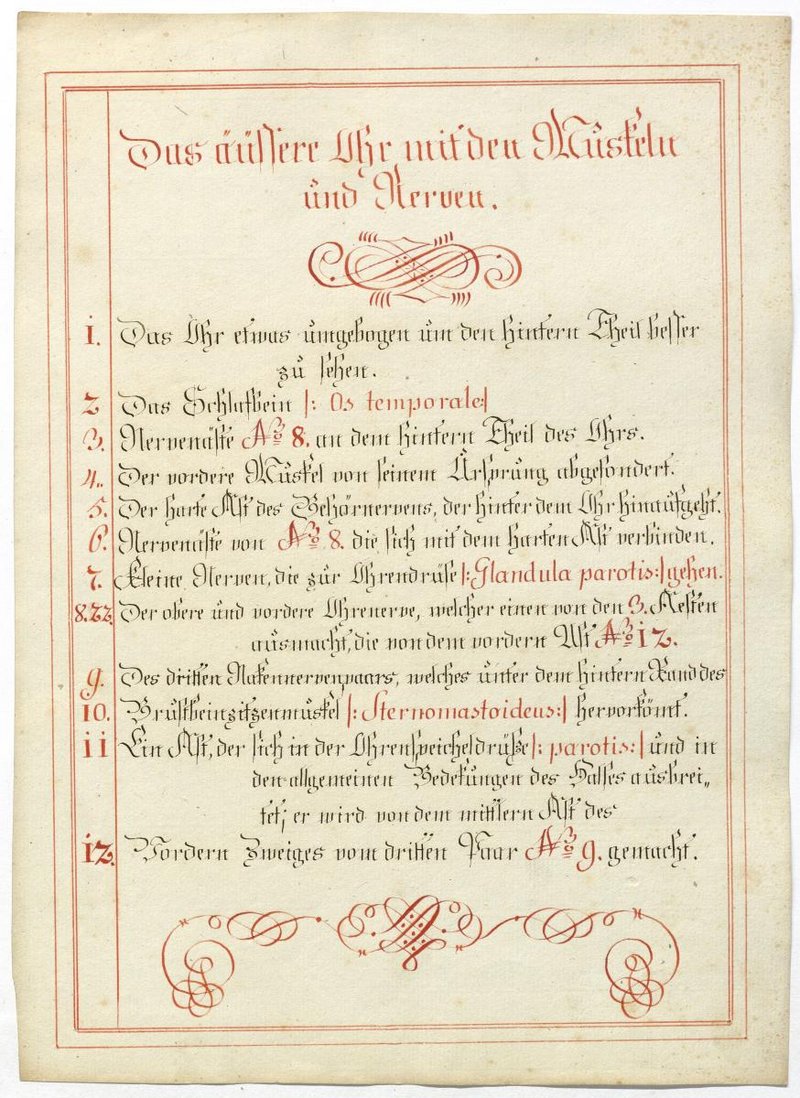 Das äüssere Ohr mit den Müskeln
ünd Nerven.
1. Das Ohr etwas ümgebogen üm den hintern Theil besser
zü sehen.
2 Das Schlafbein |: Os temporale:|
3. Nervenäste No 8. an dem hintern Theil des Ohrs.
4. Der vordere Müskel von seinem Ürsprüng abgesondert.
5. Der harte Ast des Gehörnervens, der hinter dem Ohr hinaüfgeht.
6. Nervenäste von No 8. die sich mit dem harten Ast verbinden.
7. Kleine Nerven, die zür Ohrendrüse |: Glandula parotis:| gehen.
8.22. Der obere ünd vordere Ohrenerve, welcher einen von den 3. Aesten
ausmacht, die von dem vordern Ast No 12.
9. Des dritten Nakennervenpaars, welches ünter dem hintern Rand des
10. Brüstbeinzitzenmüskel |: Sternomastoideus:| hervorkömt.
11 Ein Ast, der sich in der Ohrenspeicheldrüße |: parotis:| ünd in
den allgemeinen Bedeküngen des Halses ausbrei„
tet; er wird von dem mittlern Ast des
12. Vordern Zweiges vom dritten Paar No 9. gemacht.